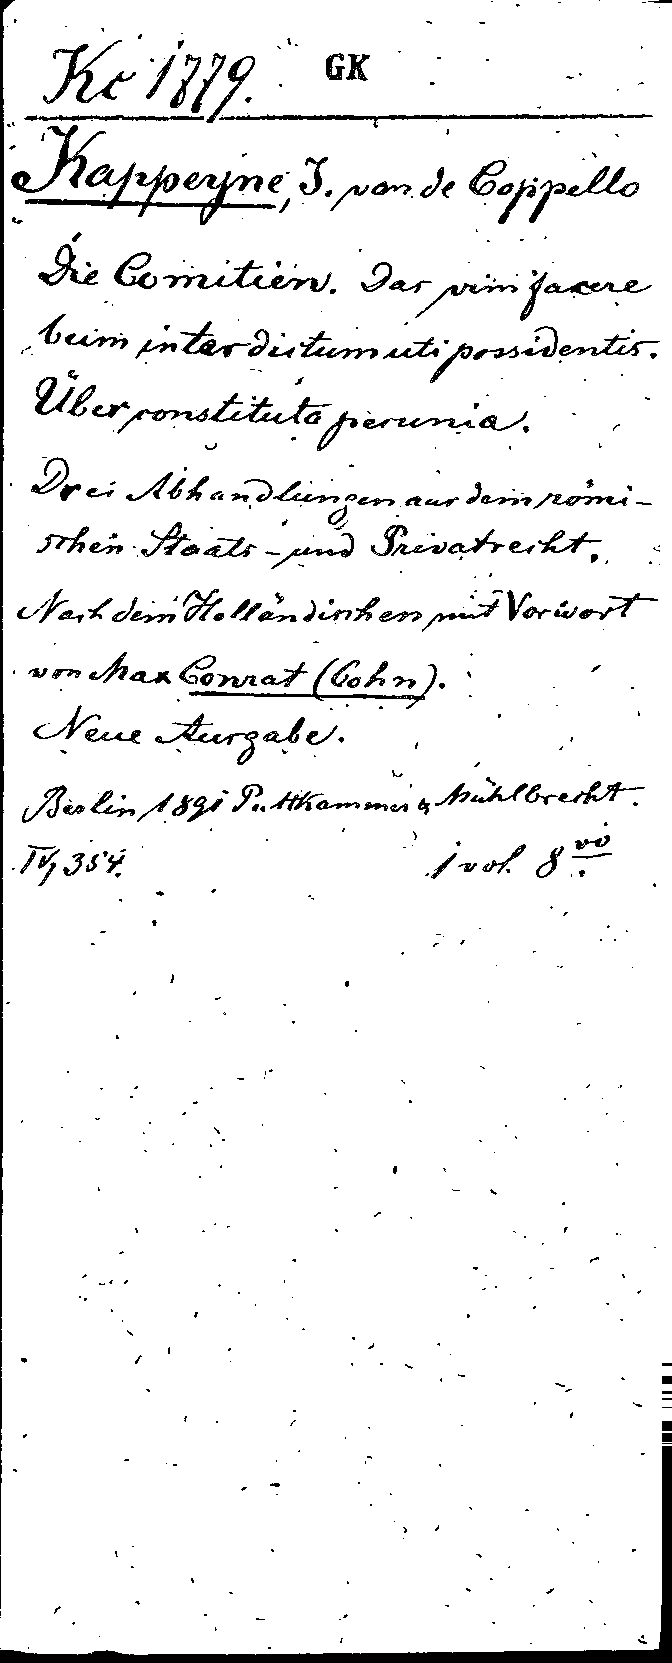 Kc 1779. GK
Kappeyne, J. van de Coppello
Die Comitien. Das vim facere
beim interdictum uti possidentis.
Über constituta pecunia.
Drei Abhandlungen aus dem römi-
schen Staats- und Privatrecht.
Nach dem Holländischen mit Vorwort
von Max Conrat (Cohn).
Neue Ausgabe.
Berlin 1891 Puttkammer & Mühlbrecht.
IV, 354. 1 vol. 8vo.